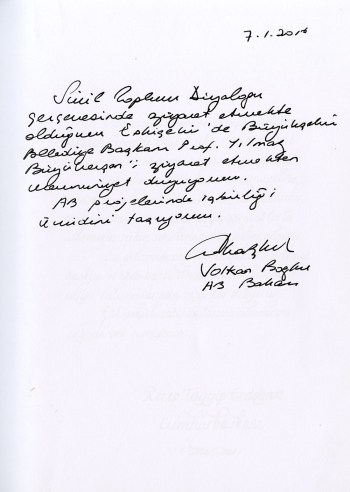 7.1.2016
Sivil Toplum Diyaloğu
çerçevesinde ziyaret etmekte
olduğum Eskişehir'de Büyükşehir
Belediye Başkanı Prof. Yılmaz
Büyükerşen'i ziyaret etmekten
memnuniyet duyuyorum.
AB projelerinde işbirliği
ümidini taşıyorum.
Volkan Bozkır
AB Bakanı